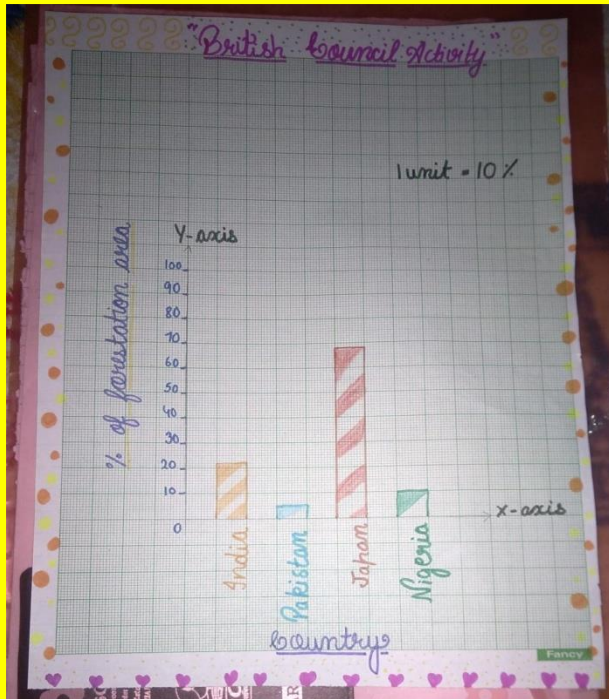 "British Council Activity"
1 unit = 10 %
Y-axis
% of forestation area
100
90
80
70
60
50
40
30
20
10
0
X-axis
India
Pakistan
Japan
Nigeria
Country
Fancy